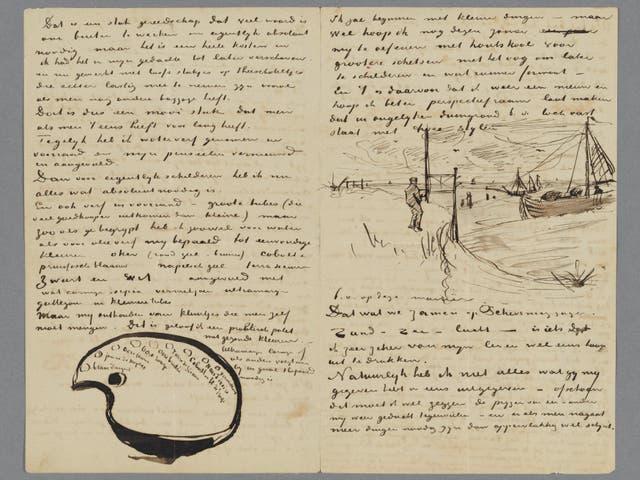 Dat is een stuk gereedschap dat veel waard is
om buiten te werken en eigentlijk absoluut
noodig maar het is een heele kosten en
ik had het in mijn gedachte tot later verschoven
en me gewerkt met losse stukjes op theeschoteltjes
die echter lastig mee te nemen zijn vooral
als men nog andere bagage heeft.
Dus is dus een mooi stuk dat men
als men 't eens heeft voor lang heeft.
Tegelijk heb ik waterverf genomen in
voorraad en mijn penseelen vernieuwd
en aangevuld.
Dan voor eigentlijk schilderen heb ik nu
alles wat absoluut noodig is.
En ook verf in voorraad – groote tubes (die
veel goedkooper uitkomen dan kleine) maar
zoo als ge begrijpt heb ik zoowel voor water
als voor olieverf mij bepaald tot eenvoudige
kleuren oker (rood – geel – bruin) cobalt &
pruissisch blaauw napelsch geel terra sienna
Zwart en wit aangevuld met
wat carmijn sepia vermiljoen ultramarijn
guttegom in kleiner tubes
Maar mij onthouden van kleurtjes die men zelf
moet mengen. Dit is geloof ik een praktisch palet
met gezonde kleuren.
Ultramarijn carmijn of
als anders voegt men
bij in geval bepaald
noodig is
Ik zal beginnen met kleine dingen – maar
wel hoop ik nog dezen zomer
mij te oefenen met houtskool voor
grootere schetsen met het oog om later
te schilderen in wat ruimer formaat –
En 't is daarvoor dat ik weer een nieuw en
hoop ik beter perspectiefraam laat maken
dat in ongelijken duingrond toch vast
staat met twee
b.v. op deze manier
Dat wat we zamen op Schevening zagen
Zand – Zee – Lucht – is iets dat
ik zeer zeker van mijn leven wel eens hoop
uit te drukken.
Natuurlijk heb ik niet alles wat gij mij
gegeven hebt in eens uitgegeven – ofschoon
dit moet ik wel zeggen de prijzen van een en ander
mij weer geducht tegenvielen – en er als men nagaat
meer dingen noodig zijn dan oppervlakkig wel schijnt.